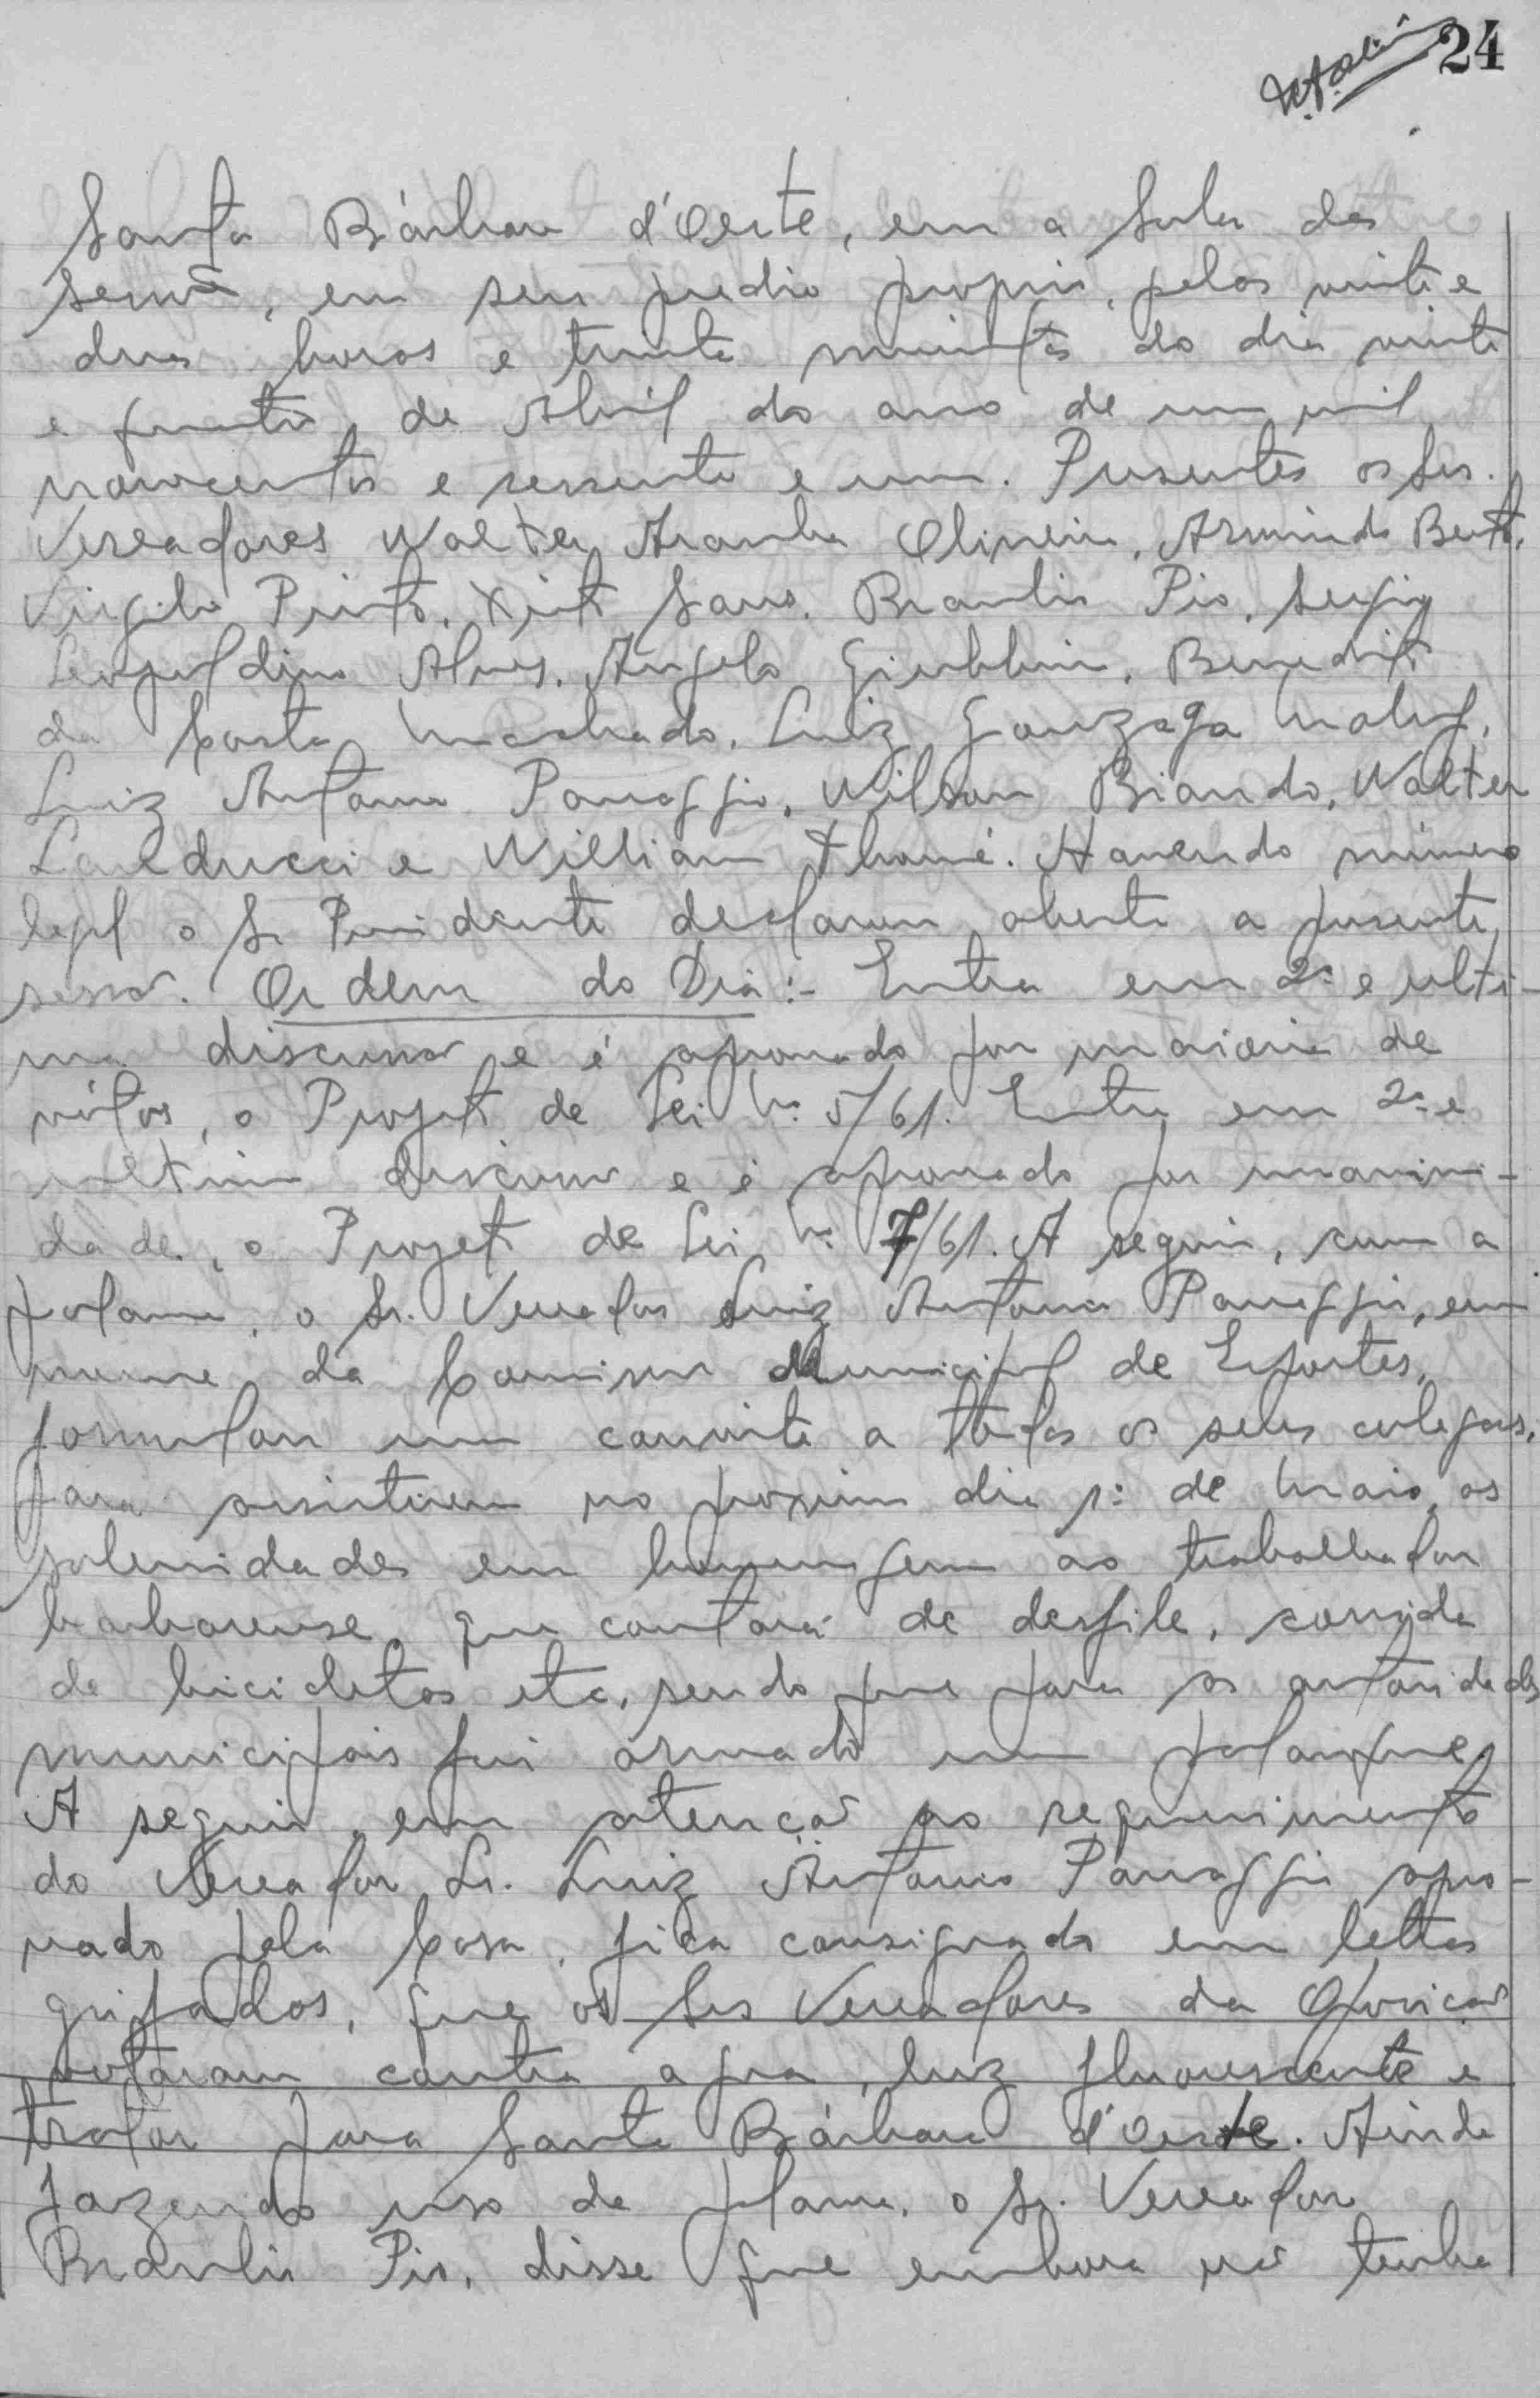 24
Santa Bárbara d'Oeste, em a Sala das
sessões, em seu predio proprio, pelas vinte e
duas horas e trinta minutos do dia vinte
e quatro de Abril do ano de um mil
novecentos e sessenta e um. Presentes os Srs.
Vereadores Walter Aranha Oliveira, Armindo Bento,
Virgilio Pinto, Xisto Sans, Braulio Pio, Sergio
Leopoldino Alves, Angelo Giubbina, Benedito
da Costa Machado, Luiz Gonzaga Maluf,
Luiz Antonio Panaggio, Wilson Biando, Walter
Landucci e William Thomé. Havendo número
legal o Sr Presidente declarou aberta a presente
sessão. Ordem do Dia:- Entra em 2ª e ulti-
ma discussão e é aprovado por maioria de
vótos, o Projeto de Lei Nº 5/61. Entra em 2ª e
ultima discussão e é aprovado por unanimi-
dade, o Projeto de Lei Nº 7/61. A seguir, com a
palavra, o Sr. Vereador Luiz Antonio Panaggio, em
nome da Comissão Municipal de Esportes,
formulou um convite a todos os seus colegas,
para assistirem no proximo dia 1º de Maio, as
solenidades em homenagem ao trabalhador
barbarense, que contará de desfile, corrida
de bicicletas etc, sendo que para as autoridades
municipais foi armado um palanque.
A seguir, em atenção ao requerimento
do Vereador Sr. Luiz Antonio Panaggio apro-
vado pela Casa, fica consignado em letras
grifadas, que os Srs Vereadores da Oposição
votaram contra agua, luz fluorescente e
trator para Santa Bárbara d'Oeste. Ainda
fazendo uso da palavra, o Sr. Vereador
Braulio Pio, disse que embora não tenha